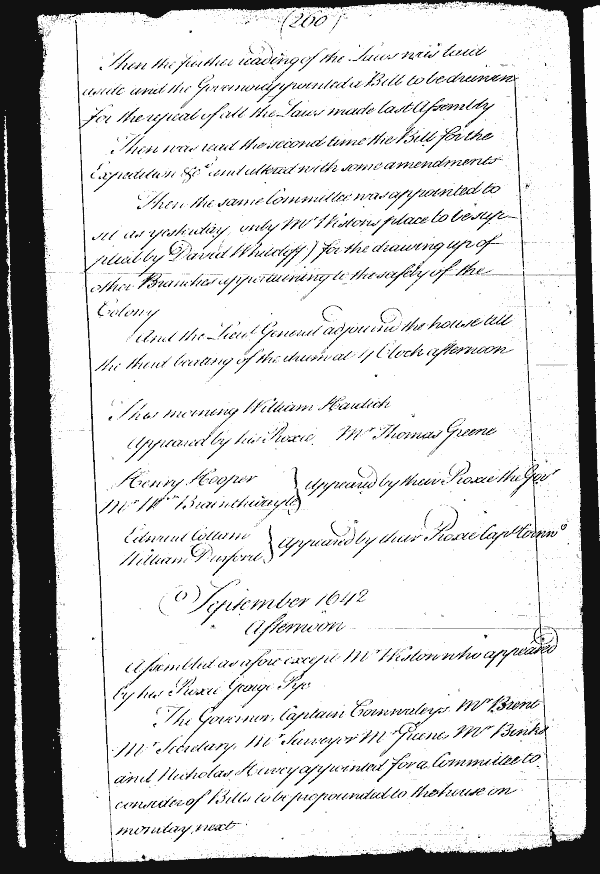 (260)
Then the further reading of the Laws was laid
aside and the Governor appointed a Bill to be drawn
for the repeal of all the Laws made last Assembly
Then was read the second time the Bill for the
Expedition &c and altered with some amendments
Then the same Committee was appointed to
sit as yesterday, only Mr Westons place to be sup-
plied by David Whitcliff) for the drawing up of
other Branches appertaining to the safety of the
Colony
And the Lieut General adjourned the house till
the third beating of the drum at 4 Clock afternoon
This morning William Hardich
Appeared by his Proxie, Mr Thomas Greene
Henry Hooper
Mr Wm Brainthwayte } Appeared by their Proxie the Govr
Edward
William } Appeared by their Proxie Capt Cornws
6 September 1642
Afternoon
Assembled as afore except Mr Weston who appeared
by his Proxie George Pye
The Governor, Captain Cornwaleys, Mr Brent
Mr Secretary, Mr Surveyor Mr Greene, Mr Binks
and Nicholas Hervey appointed for a Committee to
consider of Bills to be propounded to the house on
monday next